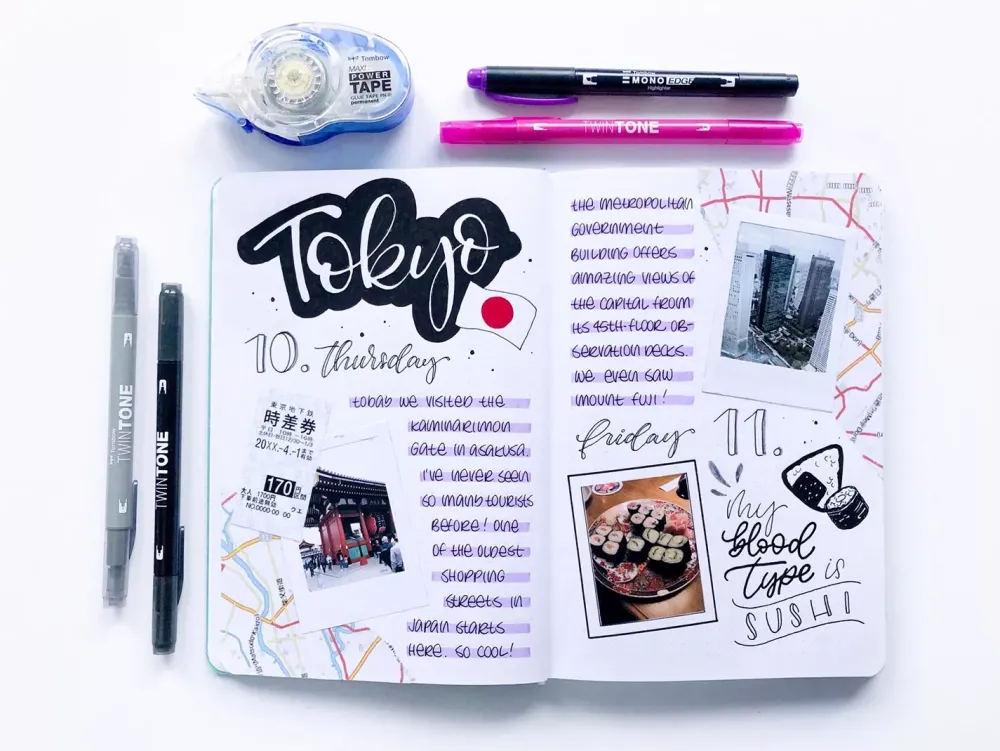 Tombow
MAX!
POWER
TAPE
GLUE TAPE
permanent
Tombow MONO EDGE
Highlighter
TWINTONE
Tombow TWINTONE
TWINTONE
Tokyo
10. Thursday
TODAY WE VISITED THE
KAMINARIMON
GATE IN ASAKUSA.
I'VE NEVER SEEN
SO MANY TOURISTS
BEFORE! ONE
OF THE OLDEST
SHOPPING
STREETS IN
JAPAN STARTS
HERE. SO COOL!
東京地下鉄
時差券
20XX.-4.-1まで
有効
170円
区間
大人 1700円
下車前途無効 ウエ
NO.0000-00 00
THE METROPOLITAN
GOVERNMENT
BUILDING OFFERS
AMAZING VIEWS OF
THE CAPITAL FROM
ITS 45TH-FLOOR OB-
SERVATION DECKS.
WE EVEN SAW
MOUNT FUJI!
friday 11.
My
blood
type is
SUSHI